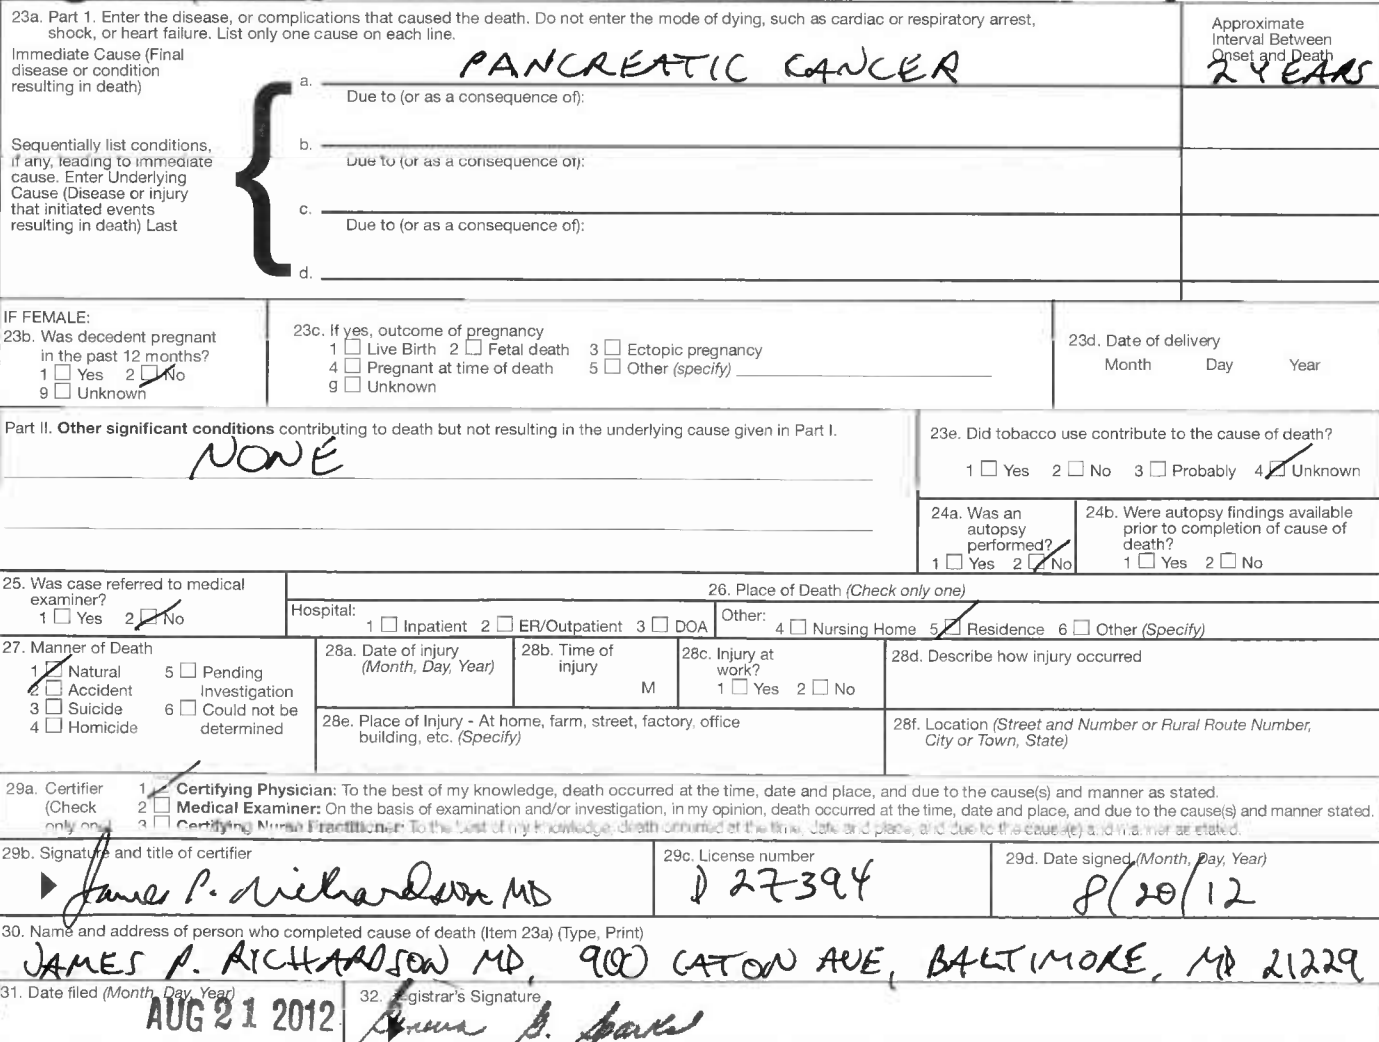 23a. Part 1. Enter the disease, or complications that caused the death. Do not enter the mode of dying, such as cardiac or respiratory arrest,
shock, or heart failure. List only one cause on each line.
Approximate
Interval Between
Onset and Death
2 YEARS
Immediate Cause (Final
disease or condition
resulting in death)
a. PANCREATIC CANCER
Due to (or as a consequence of):
Sequentially list conditions,
if any, leading to immediate
cause. Enter Underlying
Cause (Disease or injury
that initiated events
resulting in death) Last
b.
Due to (or as a consequence of):
c.
Due to (or as a consequence of):
d.
IF FEMALE:
23b. Was decedent pregnant
in the past 12 months?
1 Yes 2 No
9 Unknown
23c. If yes, outcome of pregnancy
1 Live Birth 2 Fetal death 3 Ectopic pregnancy
4 Pregnant at time of death 5 Other (specify)
9 Unknown
23d. Date of delivery
Month Day Year
Part II. Other significant conditions contributing to death but not resulting in the underlying cause given in Part I.
NONE
23e. Did tobacco use contribute to the cause of death?
1 Yes 2 No 3 Probably 4 Unknown
24a. Was an
autopsy
performed?
1 Yes 2 No
24b. Were autopsy findings available
prior to completion of cause of
death?
1 Yes 2 No
25. Was case referred to medical
examiner?
1 Yes 2 No
26. Place of Death (Check only one)
Hospital:
1 Inpatient 2 ER/Outpatient 3 DOA
Other:
4 Nursing Home 5 Residence 6 Other (Specify)
27. Manner of Death
1 Natural
2 Accident
3 Suicide
4 Homicide
5 Pending
Investigation
6 Could not be
determined
28a. Date of injury
(Month, Day, Year)
28b. Time of
injury
M
28c. Injury at
work?
1 Yes 2 No
28d. Describe how injury occurred
28e. Place of Injury - At home, farm, street, factory, office
building, etc. (Specify)
28f. Location (Street and Number or Rural Route Number,
City or Town, State)
29a. Certifier
(Check
only one)
1 Certifying Physician: To the best of my knowledge, death occurred at the time, date and place, and due to the cause(s) and manner as stated.
2 Medical Examiner: On the basis of examination and/or investigation, in my opinion, death occurred at the time, date and place, and due to the cause(s) and manner stated.
3 Certifying Nurse Practitioner: To the best of my knowledge, death occurred at the time, date and place, and due to the cause(s) and manner as stated.
29b. Signature and title of certifier
James P. Richardson MD
29c. License number
D 27394
29d. Date signed (Month, Day, Year)
8/20/12
30. Name and address of person who completed cause of death (Item 23a) (Type, Print)
JAMES P. RICHARDSON MD, 900 CATON AVE, BALTIMORE, MD 21229
31. Date filed (Month, Day, Year)
AUG 21 2012
32. Registrar's Signature
B. Sparks